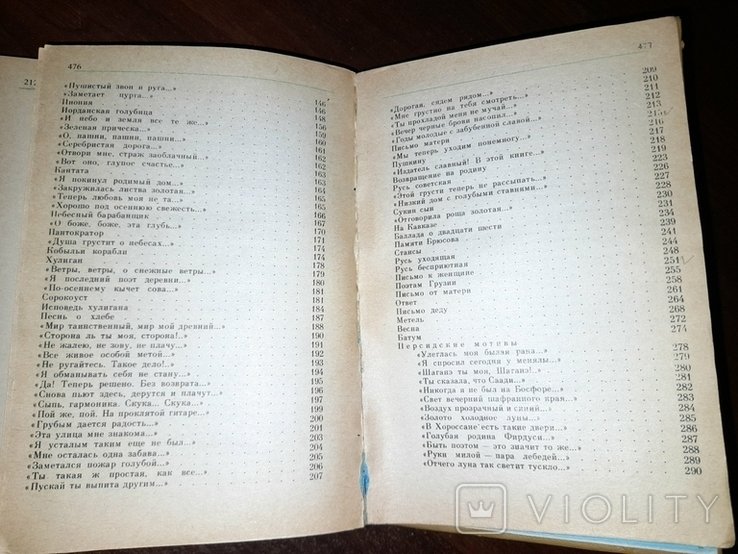 212
476
«Пушистый звон и руга...» 146
«Заметает пурга...» 146
Инония 148
Иорданская голубица 156
«И небо и земля все те же...» 158
«Зеленая прическа...» 159
«О, пашни, пашни, пашни...» 160
«Серебристая дорога...» 161
«Отвори мне, страж заоблачный...» 162
«Вот оно, глупое счастье...» 162
Кантата 162
«Я покинул родимый дом...» 163
«Закружилась листва золотая...» 163
«Теперь любовь моя не та...» 165
«Хорошо под осеннюю свежесть...» 165
Небесный барабанщик 166
«О боже, боже, эта глубь...» 167
Пантократор 170
«Душа грустит о небесах...» 171
Кобыльи корабли 174
Хулиган 174
«Ветры, ветры, о снежные ветры...» 178
«Я последний поэт деревни...» 179
«По-осеннему кычет сова...» 180
Сорокоуст 181
Исповедь хулигана 181
Песнь о хлебе 184
«Мир таинственный, мир мой древний...» 187
«Сторона ль ты моя, сторона!..» 188
«Не жалею, не зову, не плачу...» 190
«Все живое особой метой...» 191
«Не ругайтесь. Такое дело!..» 192
«Я обманывать себя не стану...» 193
«Да! Теперь решено. Без возврата...» 195
«Снова пьют здесь, дерутся и плачут...» 196
«Сыпь, гармоника. Скука.. Скука...» 197
«Пой же, пой. На проклятой гитаре...» 199
«Грубым дается радость...» 200
«Эта улица мне знакома...» 201
«Я усталым таким еще не был...» 203
«Мне осталась одна забава...» 204
«Заметался пожар голубой...» 205
«Ты такая ж простая, как все...» 206
«Пускай ты выпита другим...» 207
477
«Дорогая, сядем рядом...» 209
«Мне грустно на тебя смотреть...» 210
«Ты прохладой меня не мучай...» 211
«Вечер черные брови насопил...» 212
«Годы молодые с забубенной славой...» 213
Письмо матери 215
«Мы теперь уходим понемногу...» 216
Пушкину 217
«Издатель славный! В этой книге...» 218
Возвращение на родину 219
Русь советская 223
«Этой грусти теперь не рассыпать...» 226
«Низкий дом с голубыми ставнями...» 227
Сукин сын 228
«Отговорила роща золотая...» 230
На Кавказе 231
Баллада о двадцати шести 234
Памяти Брюсова 239
Стансы 241
Русь уходящая 244
Русь бесприютная 248
Письмо к женщине 251
Поэтам Грузии 255
Письмо от матери 258
Ответ 261
Письмо деду 264
Метель 268
Весна 272
Батум 274
Персидские мотивы
«Улеглась моя былая рана...» 278
«Я спросил сегодня у менялы...» 279
«Шаганэ ты моя, Шаганэ!..» 280
«Ты сказала, что Саади...» 281
«Никогда я не был на Босфоре...» 282
«Свет вечерний шафранного края...» 283
«Воздух прозрачный и синий...» 284
«Золото холодное луны...» 285
«В Хороссане есть такие двери...» 286
«Голубая родина Фирдуси...» 287
«Быть поэтом — это значит то же...» 288
«Руки милой — пара лебедей...» 289
«Отчего луна так светит тускло...» 290
VIOLITY